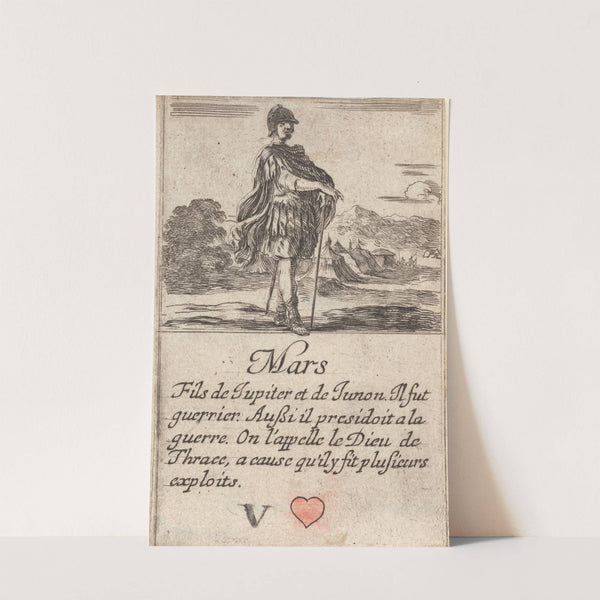 Mars
Fils de Iupiter et de Iunon. Il fut
guerrier. Außi il presidoit a la
guerre. On l'appelle le Dieu de
Thrace, a cause qu'il y fit plusieurs
exploits.
V